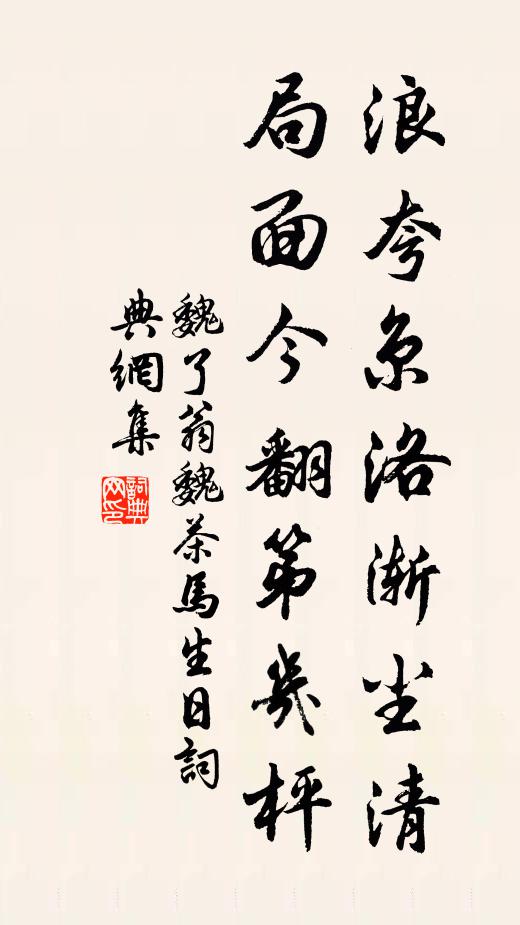 浪夸京洛渐尘清
局面今翻第几枰
魏了翁魏茶馬生日詞
典網集
詞典网印